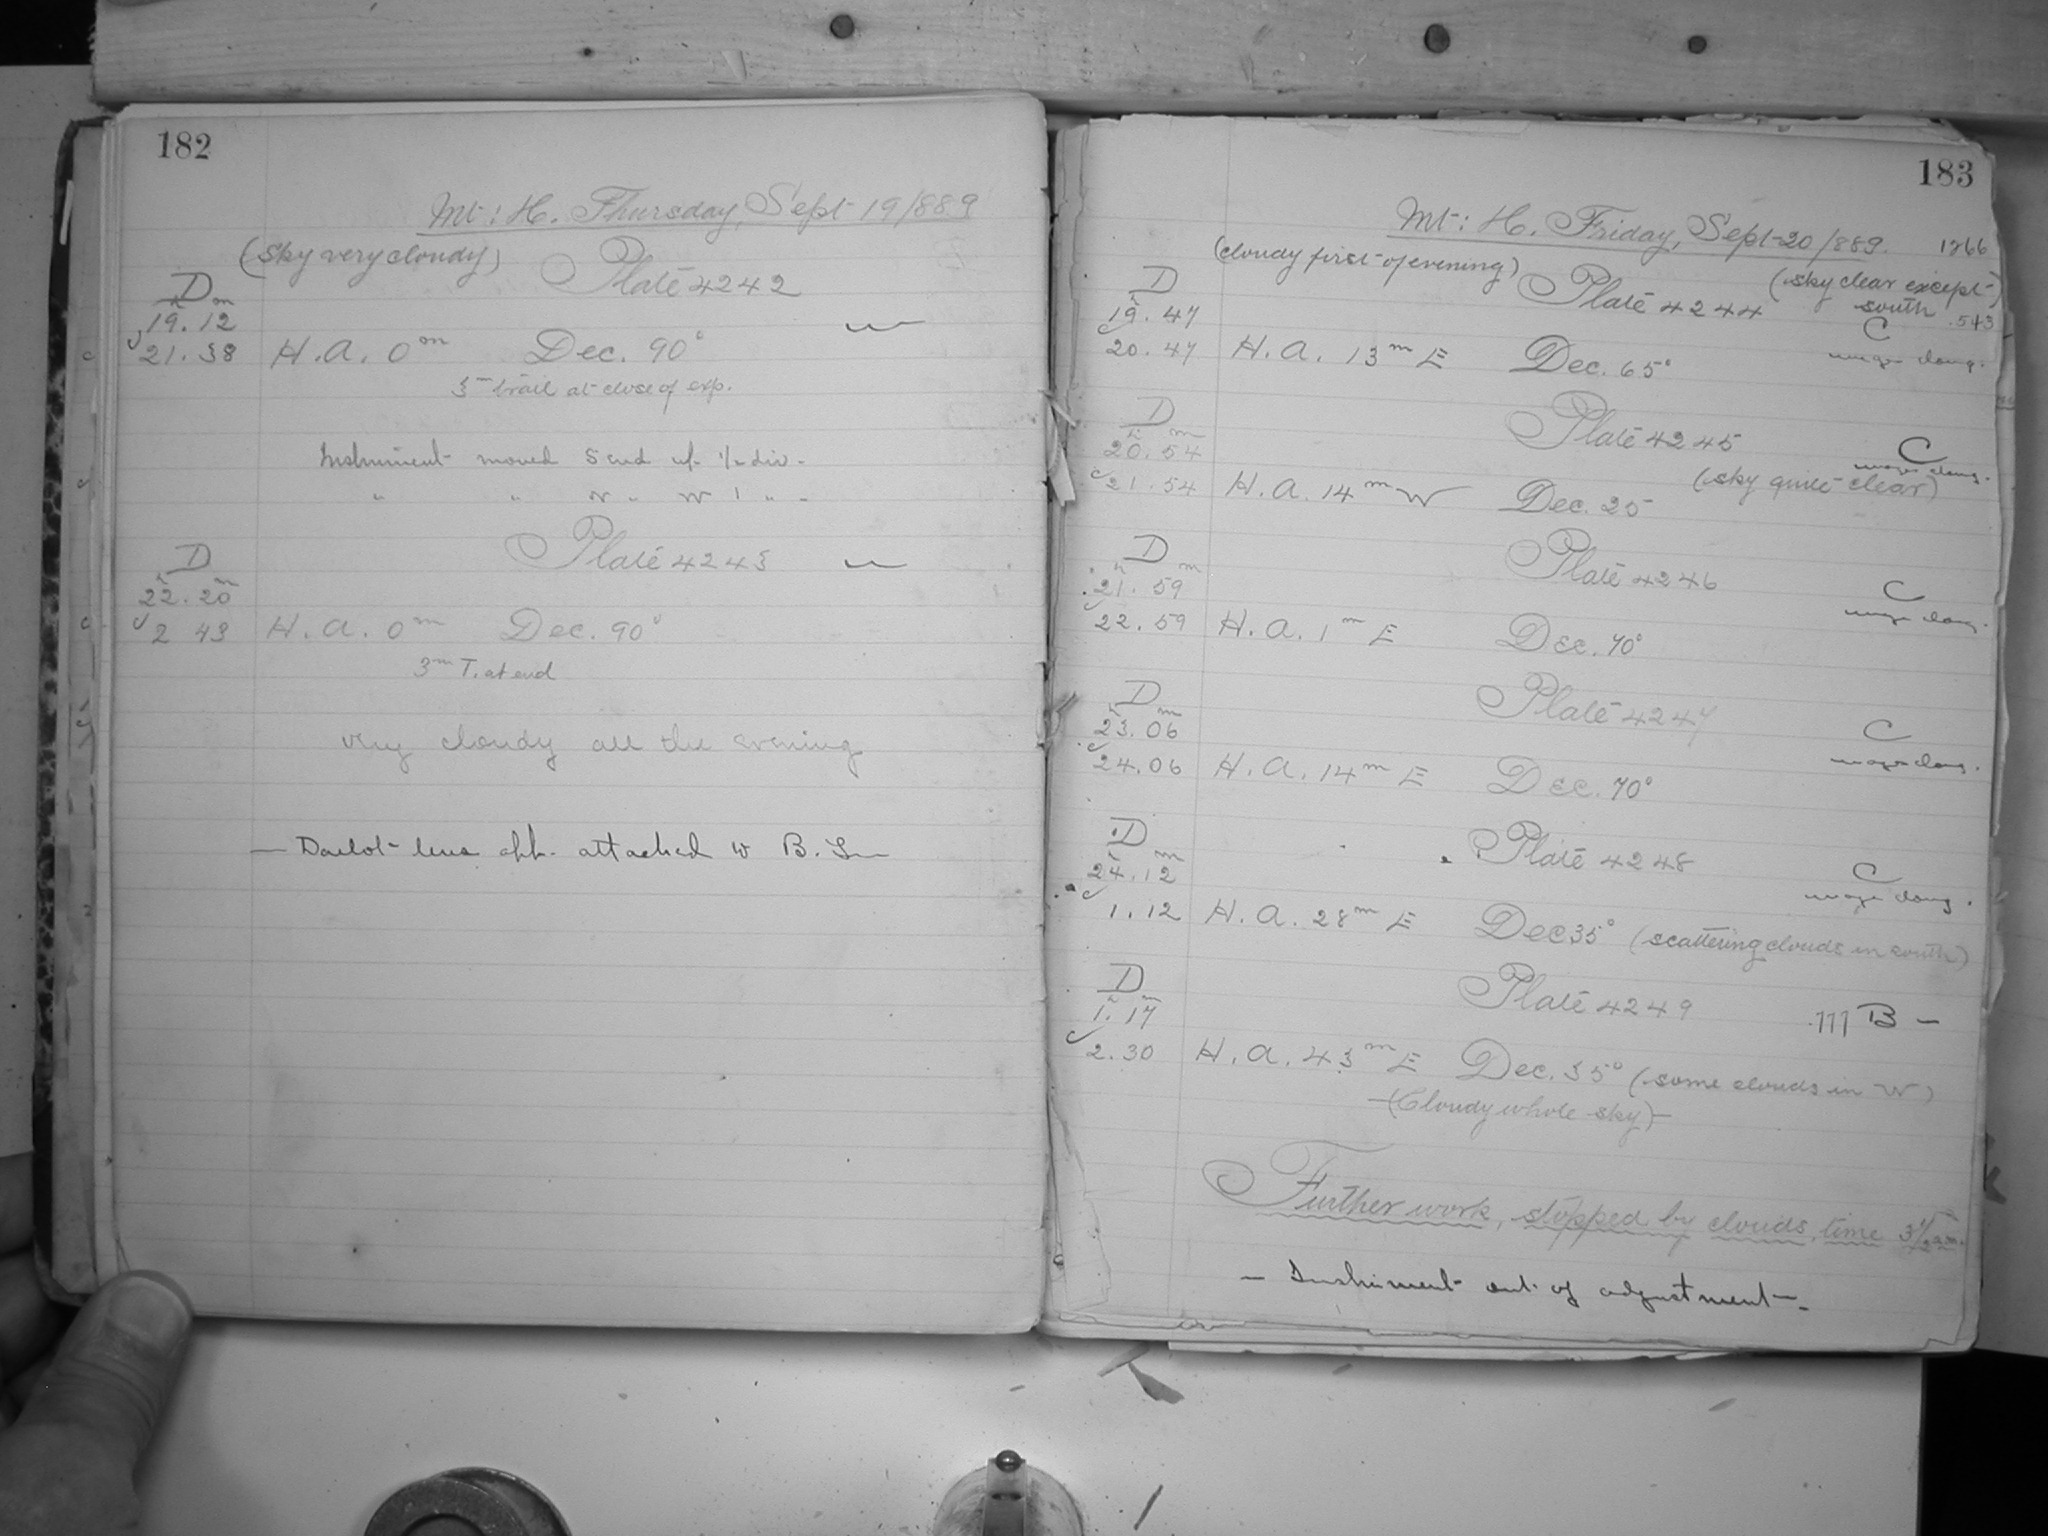 182
Mt: H. Thursday, Sept 19/889
(Sky very cloudy) Plate 4242
D
h m
19. 12
21. 38 H. A. 0m Dec. 90°
3m trail at close of exp.
Instrument moved S end up 1/2 div.
" " N " W 1 " -
Plate 4243
D
h m
22. 20
2 43 H. A. 0m Dec. 90°
3m T. at end
very cloudy all the evening
attached to B.
183
Mt: H. Friday, Sept 20/889. 1266
(cloudy first of evening) Plate 4244 (sky clear except
south) .543
D
h
19. 47 C
20. 47 H. A. 13m E Dec. 65° image elong.
D
h m
Plate 4245 C
20. 54 image elong.
21. 54 H. A. 14m W Dec. 25 (sky quite clear)
D
h m
Plate 4246
21. 59 C
22. 59 H. A. 1m E Dec. 70° image elong.
D
h m
Plate 4247
23. 06 C
24. 06 H. A. 14m E Dec. 70° image elong.
D
h m
Plate 4248
24. 12 C
image elong.
1. 12 H. A. 28m E Dec 35° (scattering clouds in south)
D
h m
Plate 4249
1. 17 .777 B -
2. 30 H. A. 43m E Dec. 35° (some clouds in W)
-(Cloudy whole sky)-
Further work, stopped by clouds, time 3 1/2 a.m.
- Instrument out of adjustment -